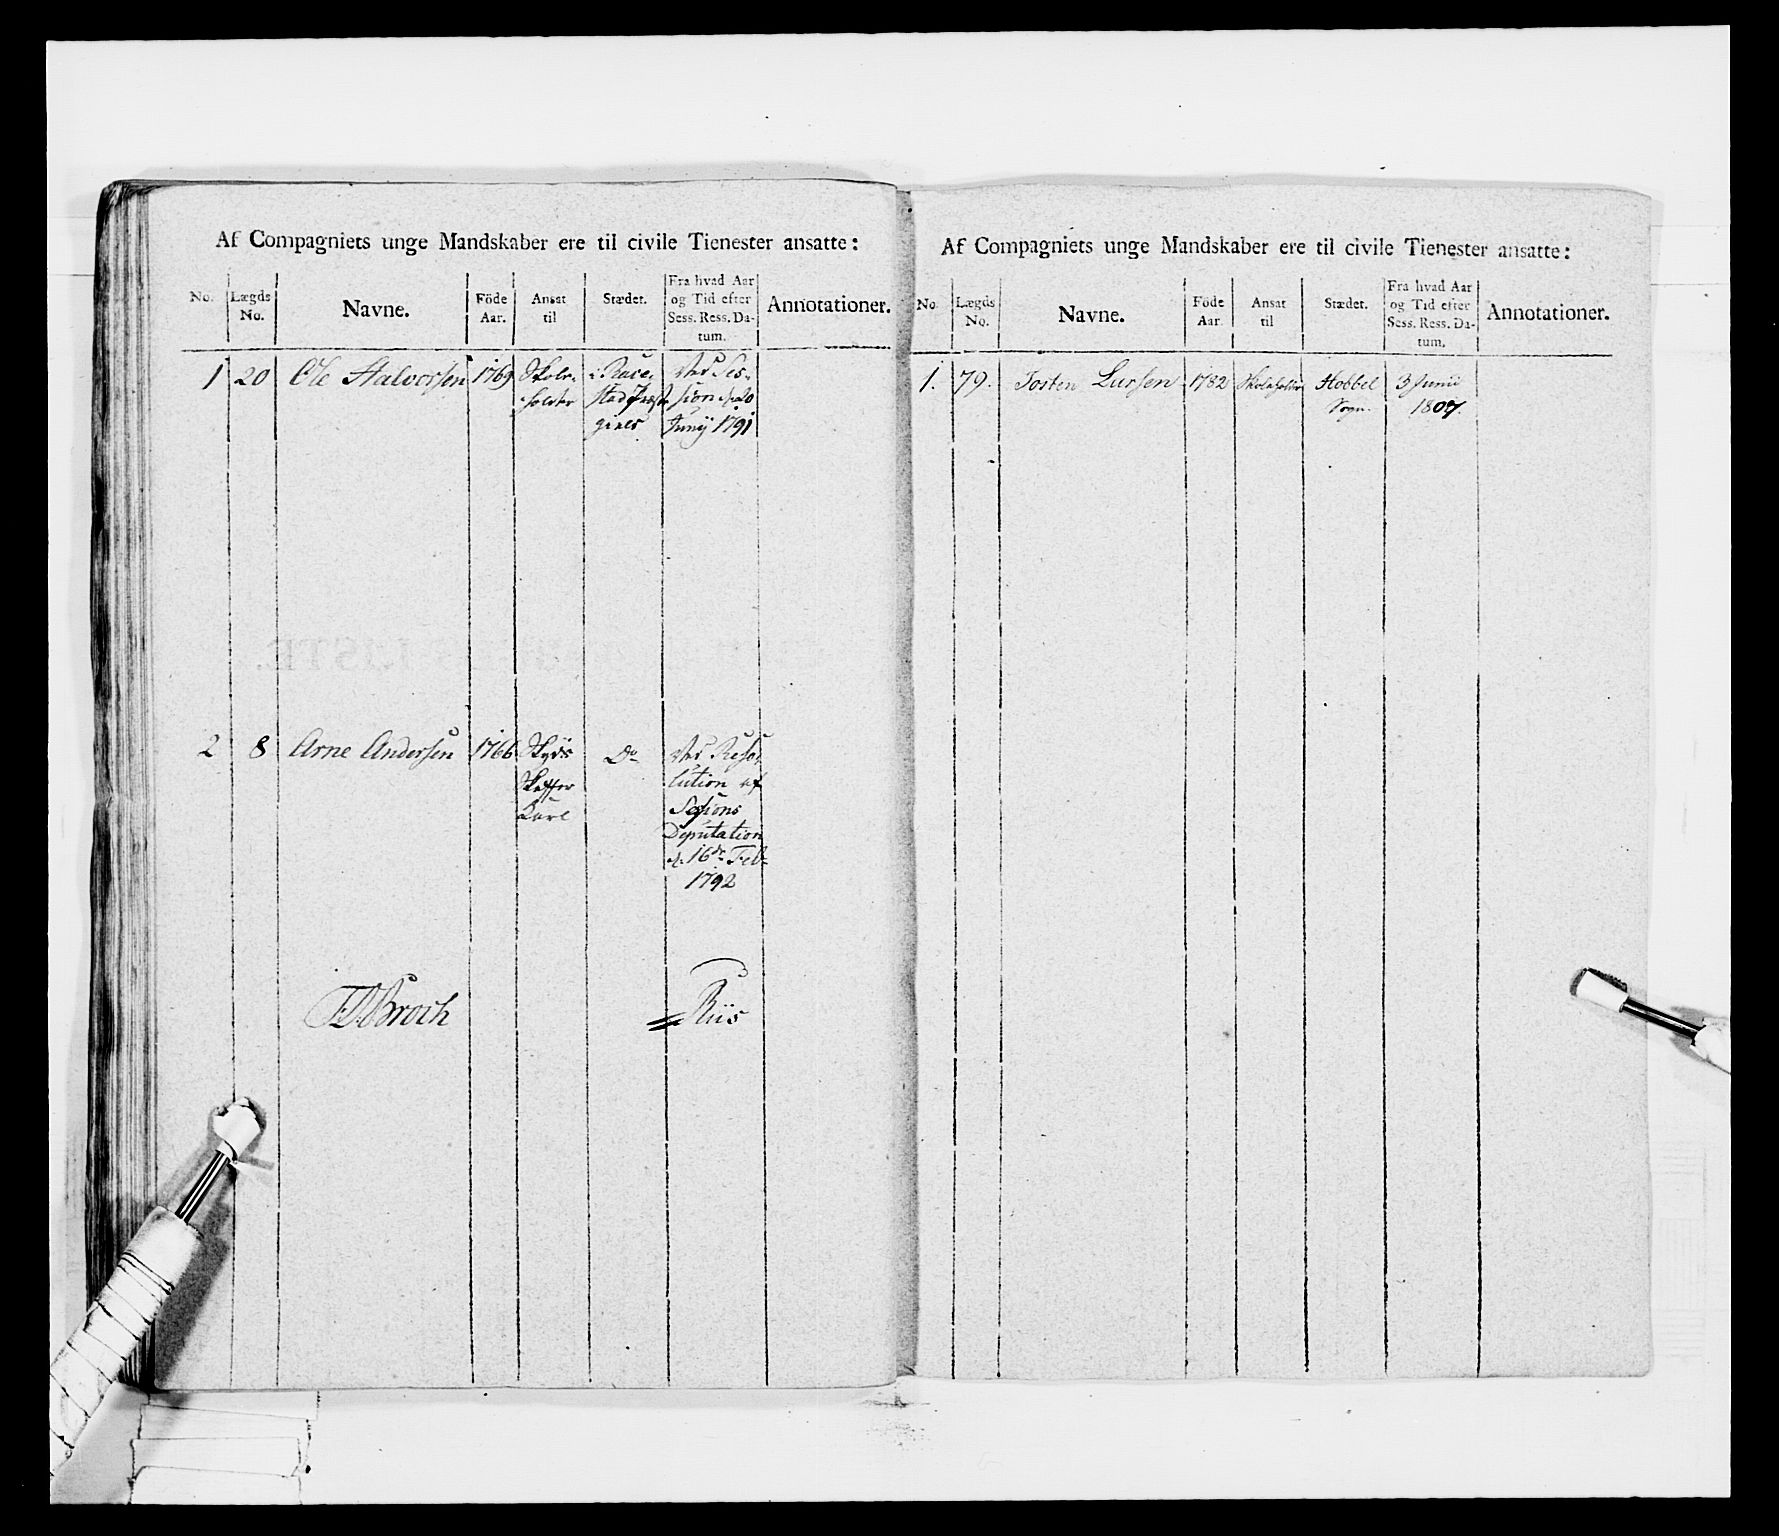 Af Compagniets unge Mandskaber ere til civile Tienester ansatte:
No. Lægds No. Navne. Föde Aar. Ansat til Stædet. Fra hvad Aar og Tid efter Sess. Ress. Datum. Annotationer.
1 20 Ole Halvorsen 1769 Skole-
holder
i Race-
stad Præste
gield
Ved Ses-
sion
Junij 1791
2 8 Arne Andersen 1766 Skyds
Skaffer
Karl
Do
Ved Reso-
lution af
Sessions
Deputation
d. 16de Feb
1792
Broch
Riis
Af Compagniets unge Mandskaber ere til civile Tienester ansatte:
No. Lægds No. Navne. Föde Aar. Ansat til Stædet. Fra hvad Aar og Tid efter Sess. Ress. Datum. Annotationer.
1. 79. Tosten Larsen 1782 Skoleholder Hobbel
Sogn.
3 Junii
1807.